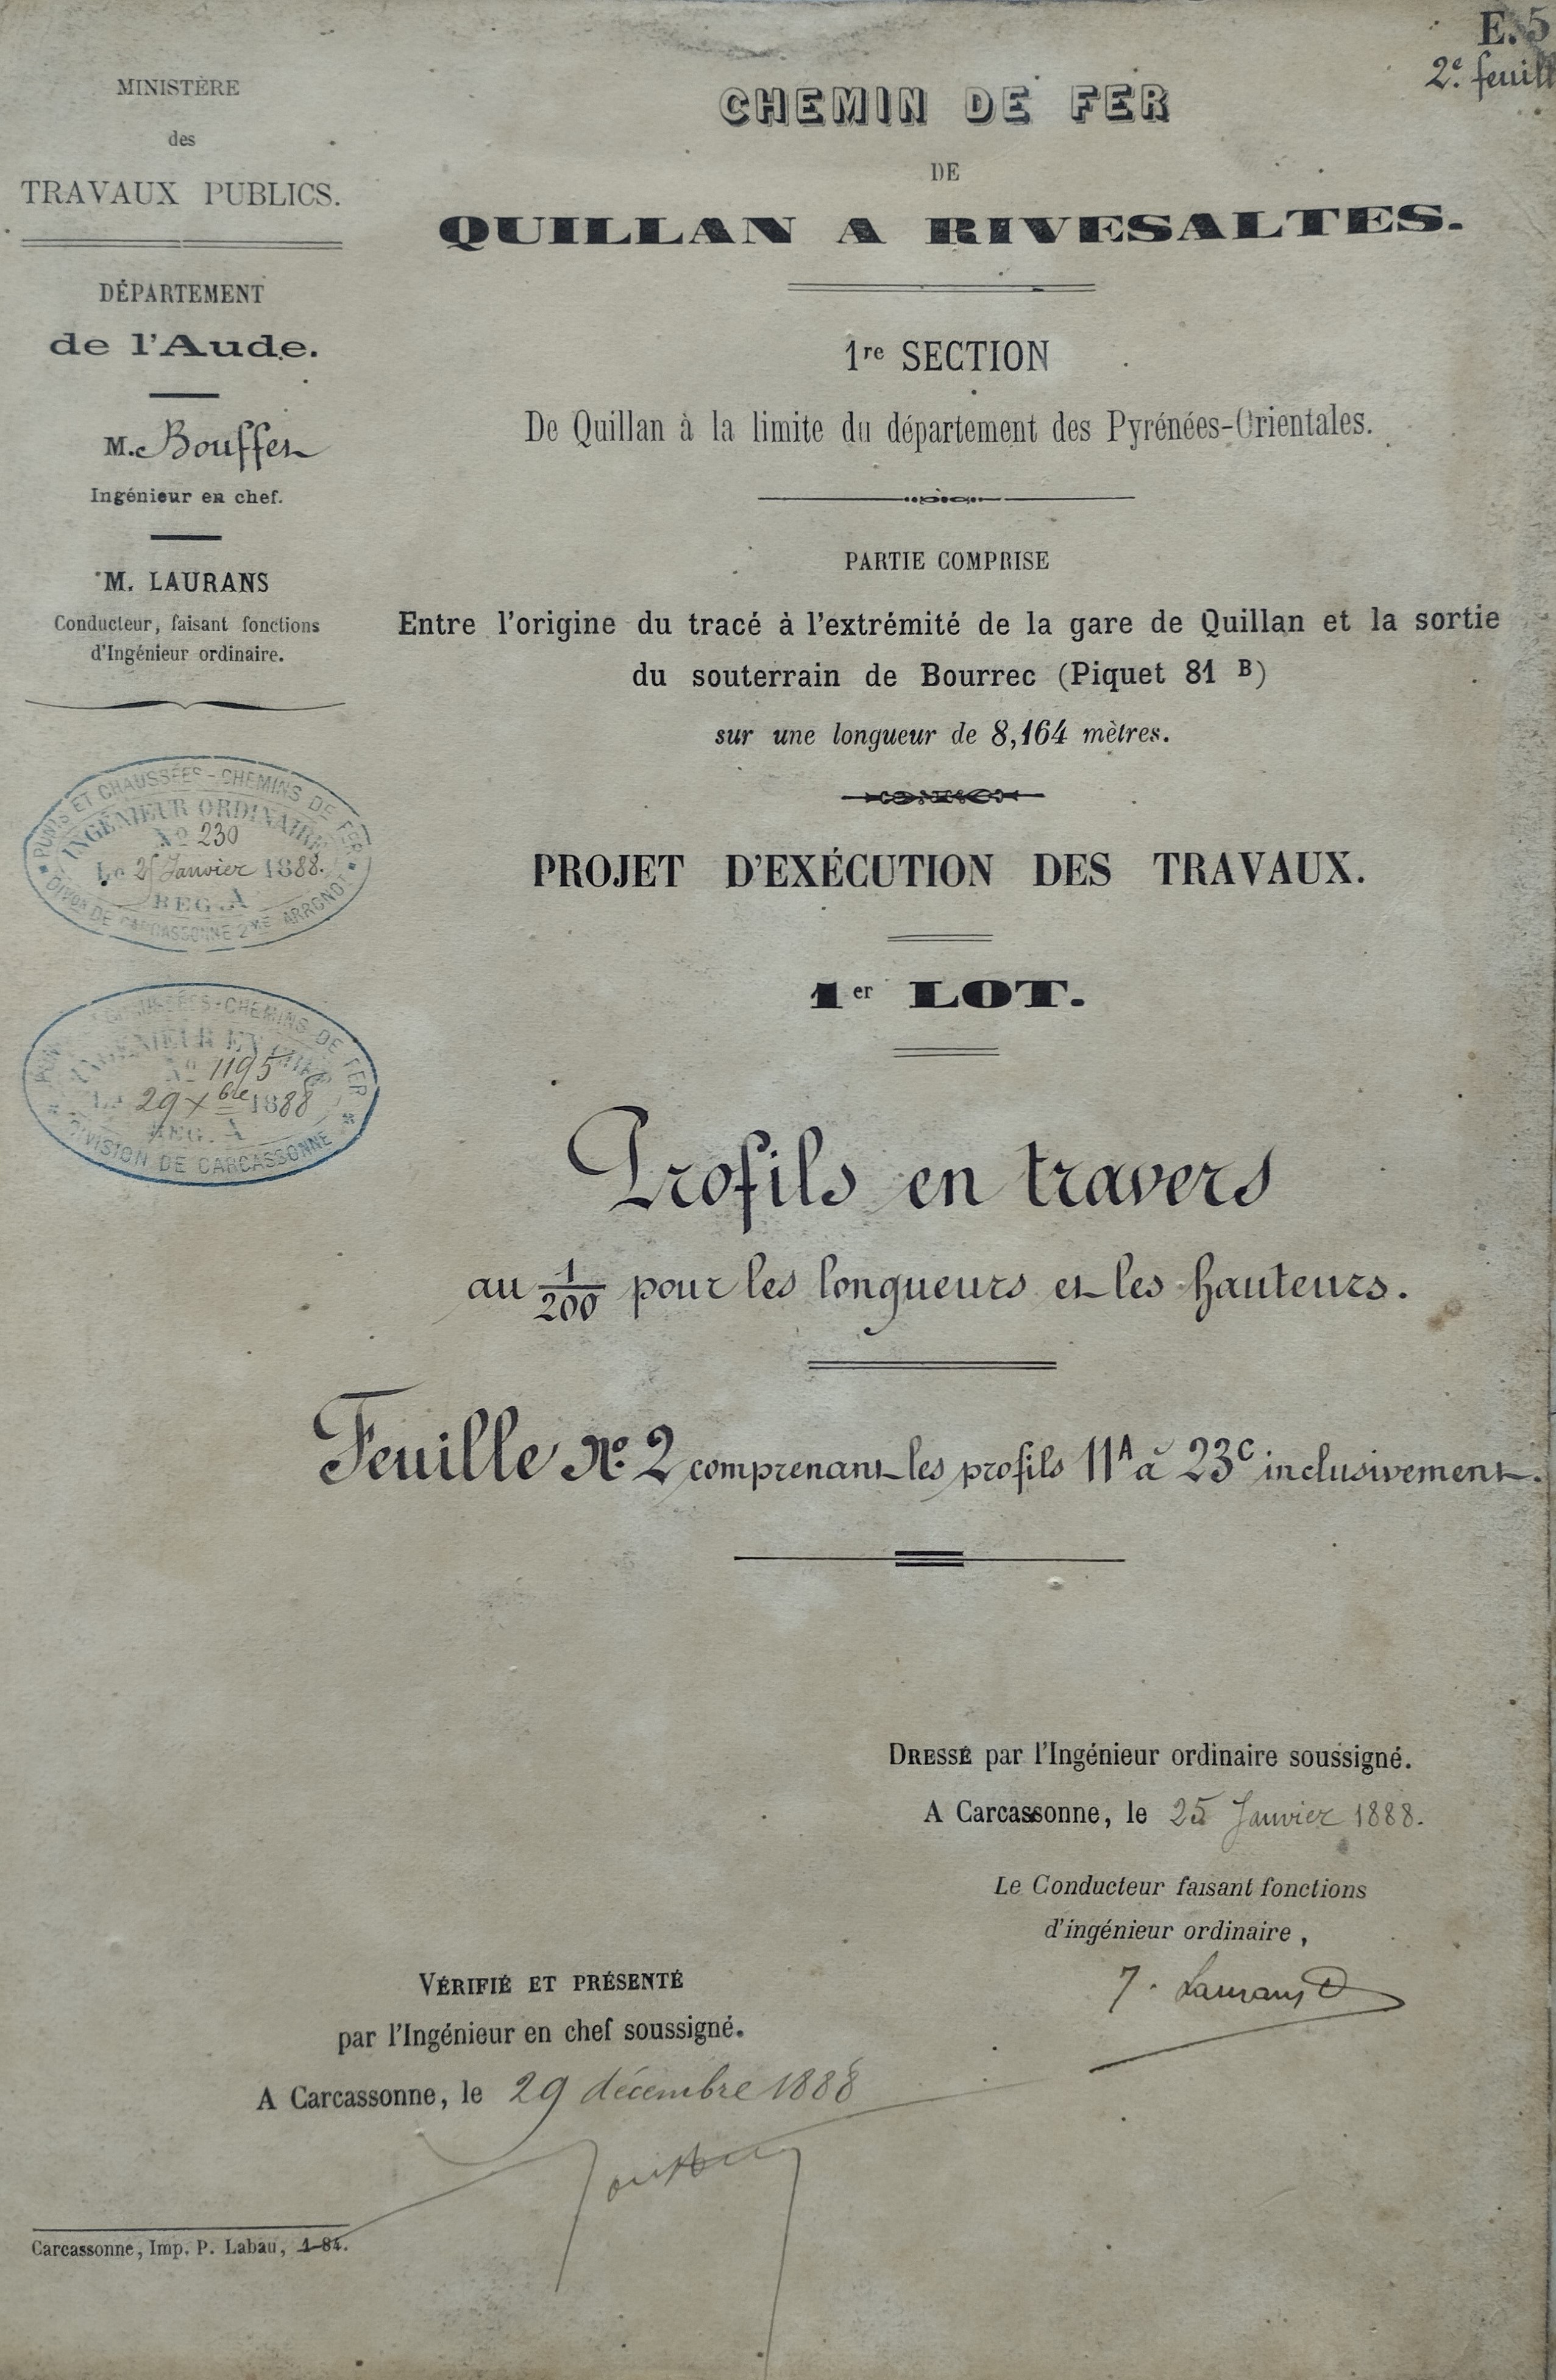 E. 5
2e. feuill
MINISTÈRE
des
TRAVAUX PUBLICS.
DÉPARTEMENT
de l'Aude.
M. Bouffet
Ingénieur en chef.
M. LAURANS
Conducteur, faisant fonctions
d'Ingénieur ordinaire.
PONTS ET CHAUSSÉES - CHEMINS DE FER
INGÉNIEUR ORDINAIRE
No 230
Le 25 Janvier 1888.
REG. A
DIVon DE CARCASSONNE 2me ARRONDT
CHAUSSÉES - CHEMINS DE FER
INGÉNIEUR EN CHEF
No 1195
Le 29 Xbre 1888
REG. A
DIVISION DE CARCASSONNE
CHEMIN DE FER
DE
QUILLAN A RIVESALTES.
1re SECTION
De Quillan à la limite du département des Pyrénées-Orientales.
PARTIE COMPRISE
Entre l'origine du tracé à l'extrémité de la gare de Quillan et la sortie
du souterrain de Bourrec (Piquet 81 B)
sur une longueur de 8,164 mètres.
PROJET D'EXÉCUTION DES TRAVAUX.
1er LOT.
Profils en travers
au 1/200 pour les longueurs et les hauteurs.
Feuille No. 2 comprenant les profils 11A à 23C inclusivement.
DRESSÉ par l'Ingénieur ordinaire soussigné.
A Carcassonne, le 25 Janvier 1888.
Le Conducteur faisant fonctions
d'ingénieur ordinaire,
J. Laurans
VÉRIFIÉ ET PRÉSENTÉ
par l'Ingénieur en chef soussigné.
A Carcassonne, le 29 décembre 1888
Bouffet
Carcassonne, Imp. P. Labau, 1-84.